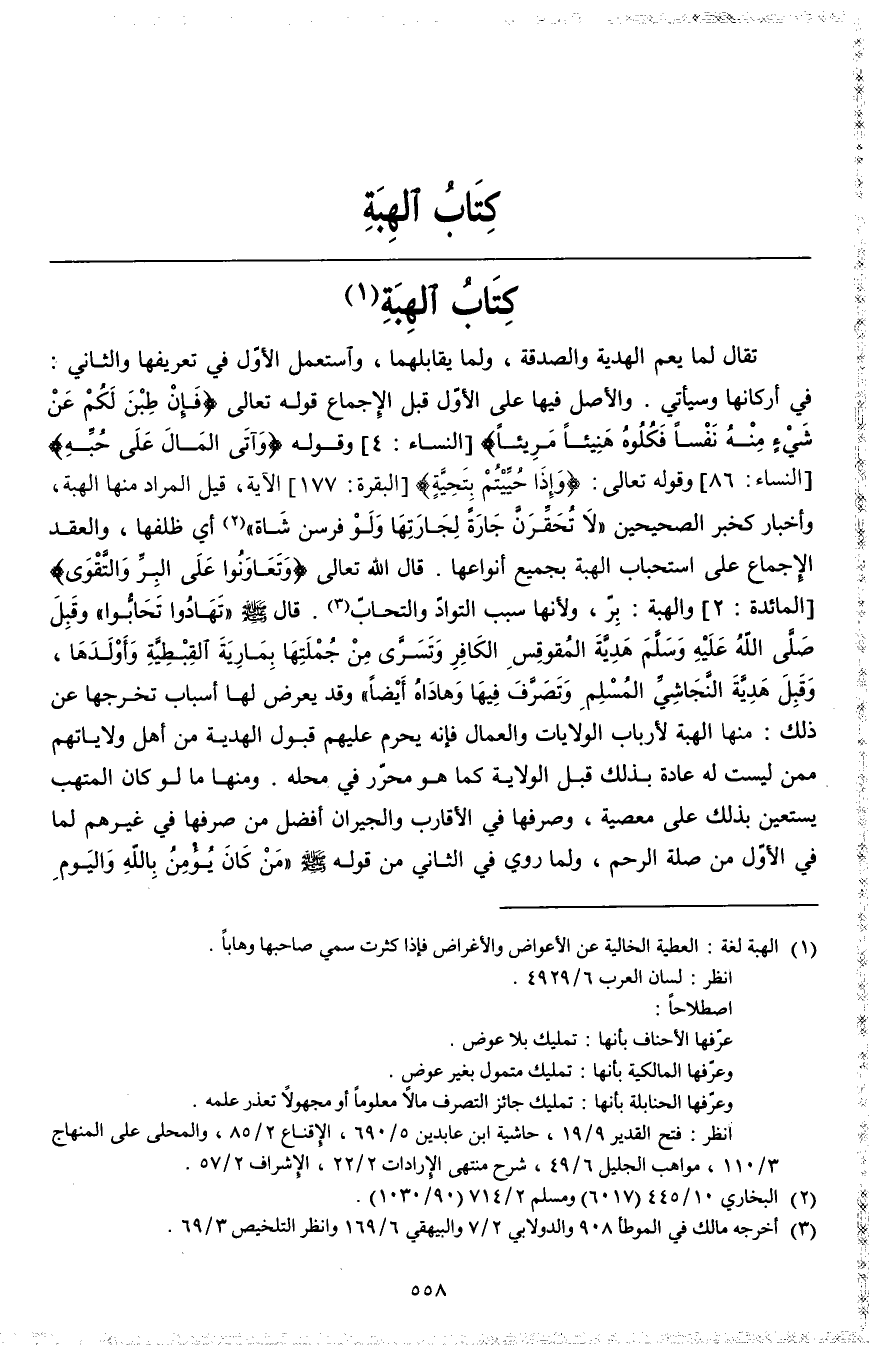 كِتَابُ ٱلهِبَةِ
كِتَابُ ٱلهِبَةِ(١)
تقال لما يعم الهدية والصدقة ، ولما يقابلهما ، وٱستعمل الأوّل في تعريفها والثـاني :
في أركانها وسيأتي . والأصل فيها على الأوّل قبل الإجماع قولـه تعالى ﴿فَـإِنْ طِبْنَ لَكُمْ عَنْ
شَيْءٍ مِنْـهُ نَفْسـاً فَكُلُوهُ هَنِيئـاً مَـرِيئـاً﴾ [النسـاء : ٤] وقـولـه ﴿وَآتَى المَـالَ عَلَى حُبِّـهِ﴾
[النساء: ٨٦] وقوله تعالى: ﴿وَإِذَا حُيِّيْتُمْ بِتَحِيَّةٍ﴾ [البقرة: ١٧٧] الآية، قيل المراد منها الهبة،
وأخبار كخبر الصحيحين «لَا تُحَقِّـرَنَّ جَارَةً لِجَارَتِهَا وَلَـوْ فرسن شَـاة»(٢) أي ظلفها ، والعقـد
الإجماع على استحباب الهبة بجميع أنواعها . قال الله تعالى ﴿وَتَعَـاوَنُوا عَلَى البِـرِّ وَالتَّقْوَى﴾
[المائدة : ٢] والهبة : بِرّ ، ولأنها سبب التوادّ والتحـابّ(٣) . قال ﷺ «تَهَـادُوا تَحَابُّـوا» وقَبِلَ
صَلَّى اللهُ عَلَيْهِ وَسَلَّمَ هَدِيَّةَ المُقوقِسِ الكَافِرِ وَتَسَرَّى مِنْ جُمْلَتِهَا بِمَارِيَةَ ٱلقِبْـطِيَّةِ وَأَوْلَـدَهَا ،
وَقَبِلَ هَدِيَّةَ النَّجَاشِيِّ المُسْلِمِ وَتَصَرَّفَ فِيهَا وَهادَاهُ أَيْضاً» وقد يعرض لهـا أسباب تخـرجها عن
ذلك : منها الهبة لأرباب الولايات والعمال فإنه يحرم عليهم قبـول الهديـة من أهل ولايـاتهم
ممن ليست له عادة بـذلك قبـل الولايـة كما هـو محرّر في محله . ومنهـا ما لـو كان المتهب
يستعين بذلك على معصية ، وصرفها في الأقارب والجيران أفضل من صرفها في غيـرهم لما
في الأوّل من صلة الرحم ، ولما روي في الثـاني من قولـه ﷺ «مَنْ كَانَ يُـؤْمِنُ بِاللَّهِ وَاليَـومِ
(١) الهبة لغة : العطية الخالية عن الأعواض والأغراض فإذا كثرت سمي صاحبها وهاباً .
انظر : لسان العرب ٤٩٢٩/٦ .
اصطلاحاً :
عرّفها الأحناف بأنها : تمليك بلا عوض .
وعرّفها المالكية بأنها : تمليك متمول بغير عوض .
وعرّفها الحنابلة بأنها : تمليك جائز التصرف مالاً معلوماً أو مجهولاً تعذر علمه .
انظر : فتح القدير ١٩/٩ ، حاشية ابن عابدين ٦٩٠/٥ ، الإقناع ٨٥/٢ ، والمحلى على المنهاج
١١٠/٣ ، مواهب الجليل ٤٩/٦ ، شرح منتهى الإرادات ٢٢/٢ ، الإشراف ٥٧/٢ .
(٢) البخاري ٤٤٥/١٠ (٦٠١٧) ومسلم ٧١٤/٢ (١٠٣٠/٩٠) .
(٣) أخرجه مالك في الموطأ ٩٠٨ والدولابي ٧/٢ والبيهقي ١٦٩/٦ وانظر التلخيص ٦٩/٣ .
٥٥٨